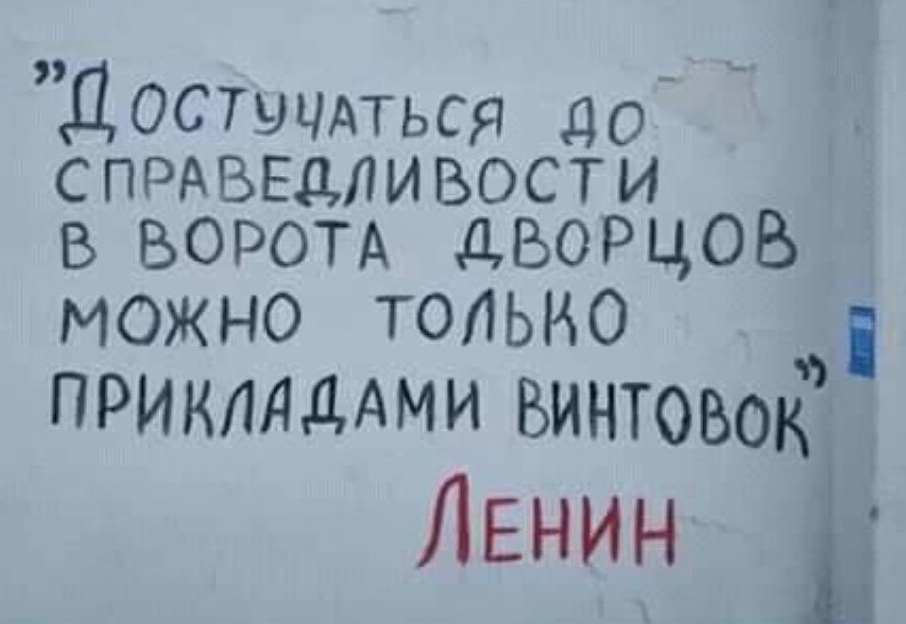 ”Достучаться до
справедливости
в ворота дворцов
можно только
прикладами винтовок”
Ленин